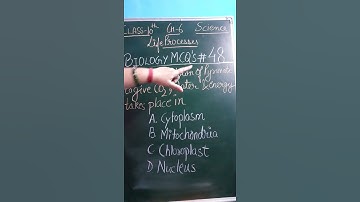 CLASS-10th Ch-6 Science
Life Processes
BIOLOGY MCQ's #48
of Pyruvate
to give CO2, water & energy
takes place in
A. Cytoplasm
B. Mitochondria
C Chloroplast
D Nucleus